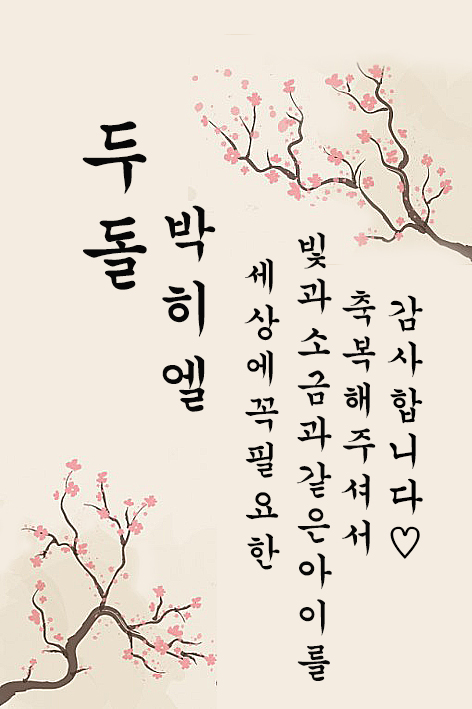 두돌
박히엘
세상에꼭필요한
빛과소금과같은아이를
축복해주셔서
감사합니다♡